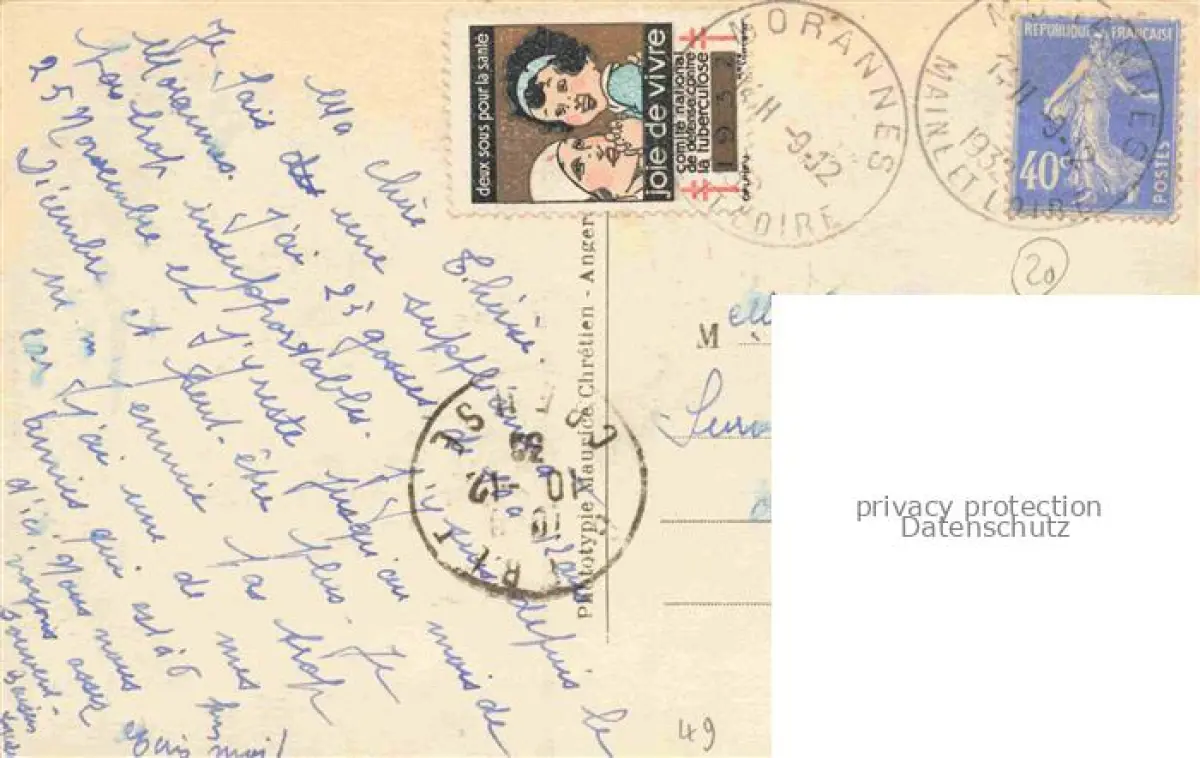 Ma chère Thérèse.
Je fais une suppléance à
Morannes. J'ai 25 gosses
pas trop insupportables. J'y suis depuis le
25 Novembre et j'y reste jusqu'au mois de
Décembre et peut-être plus. Je
ne m'y ennuie pas trop
car j'ai une de mes
amies qui est à 6 km
d'ici. Nous nous
voyons assez
souvent.
Baisers
Ecris moi!
deux sous pour la santé
joie de vivre
comité national
de défense contre
la tuberculose
1932
MORANNES
-9-12
LOIRE
MAINE ET LOIRE
1932
RÉPUBLIQUE FRANÇAISE
40c
POSTES
20
Phototypie Maurice Chrétien - Anger
M elle
10 -12
32
49
privacy protection
Datenschutz